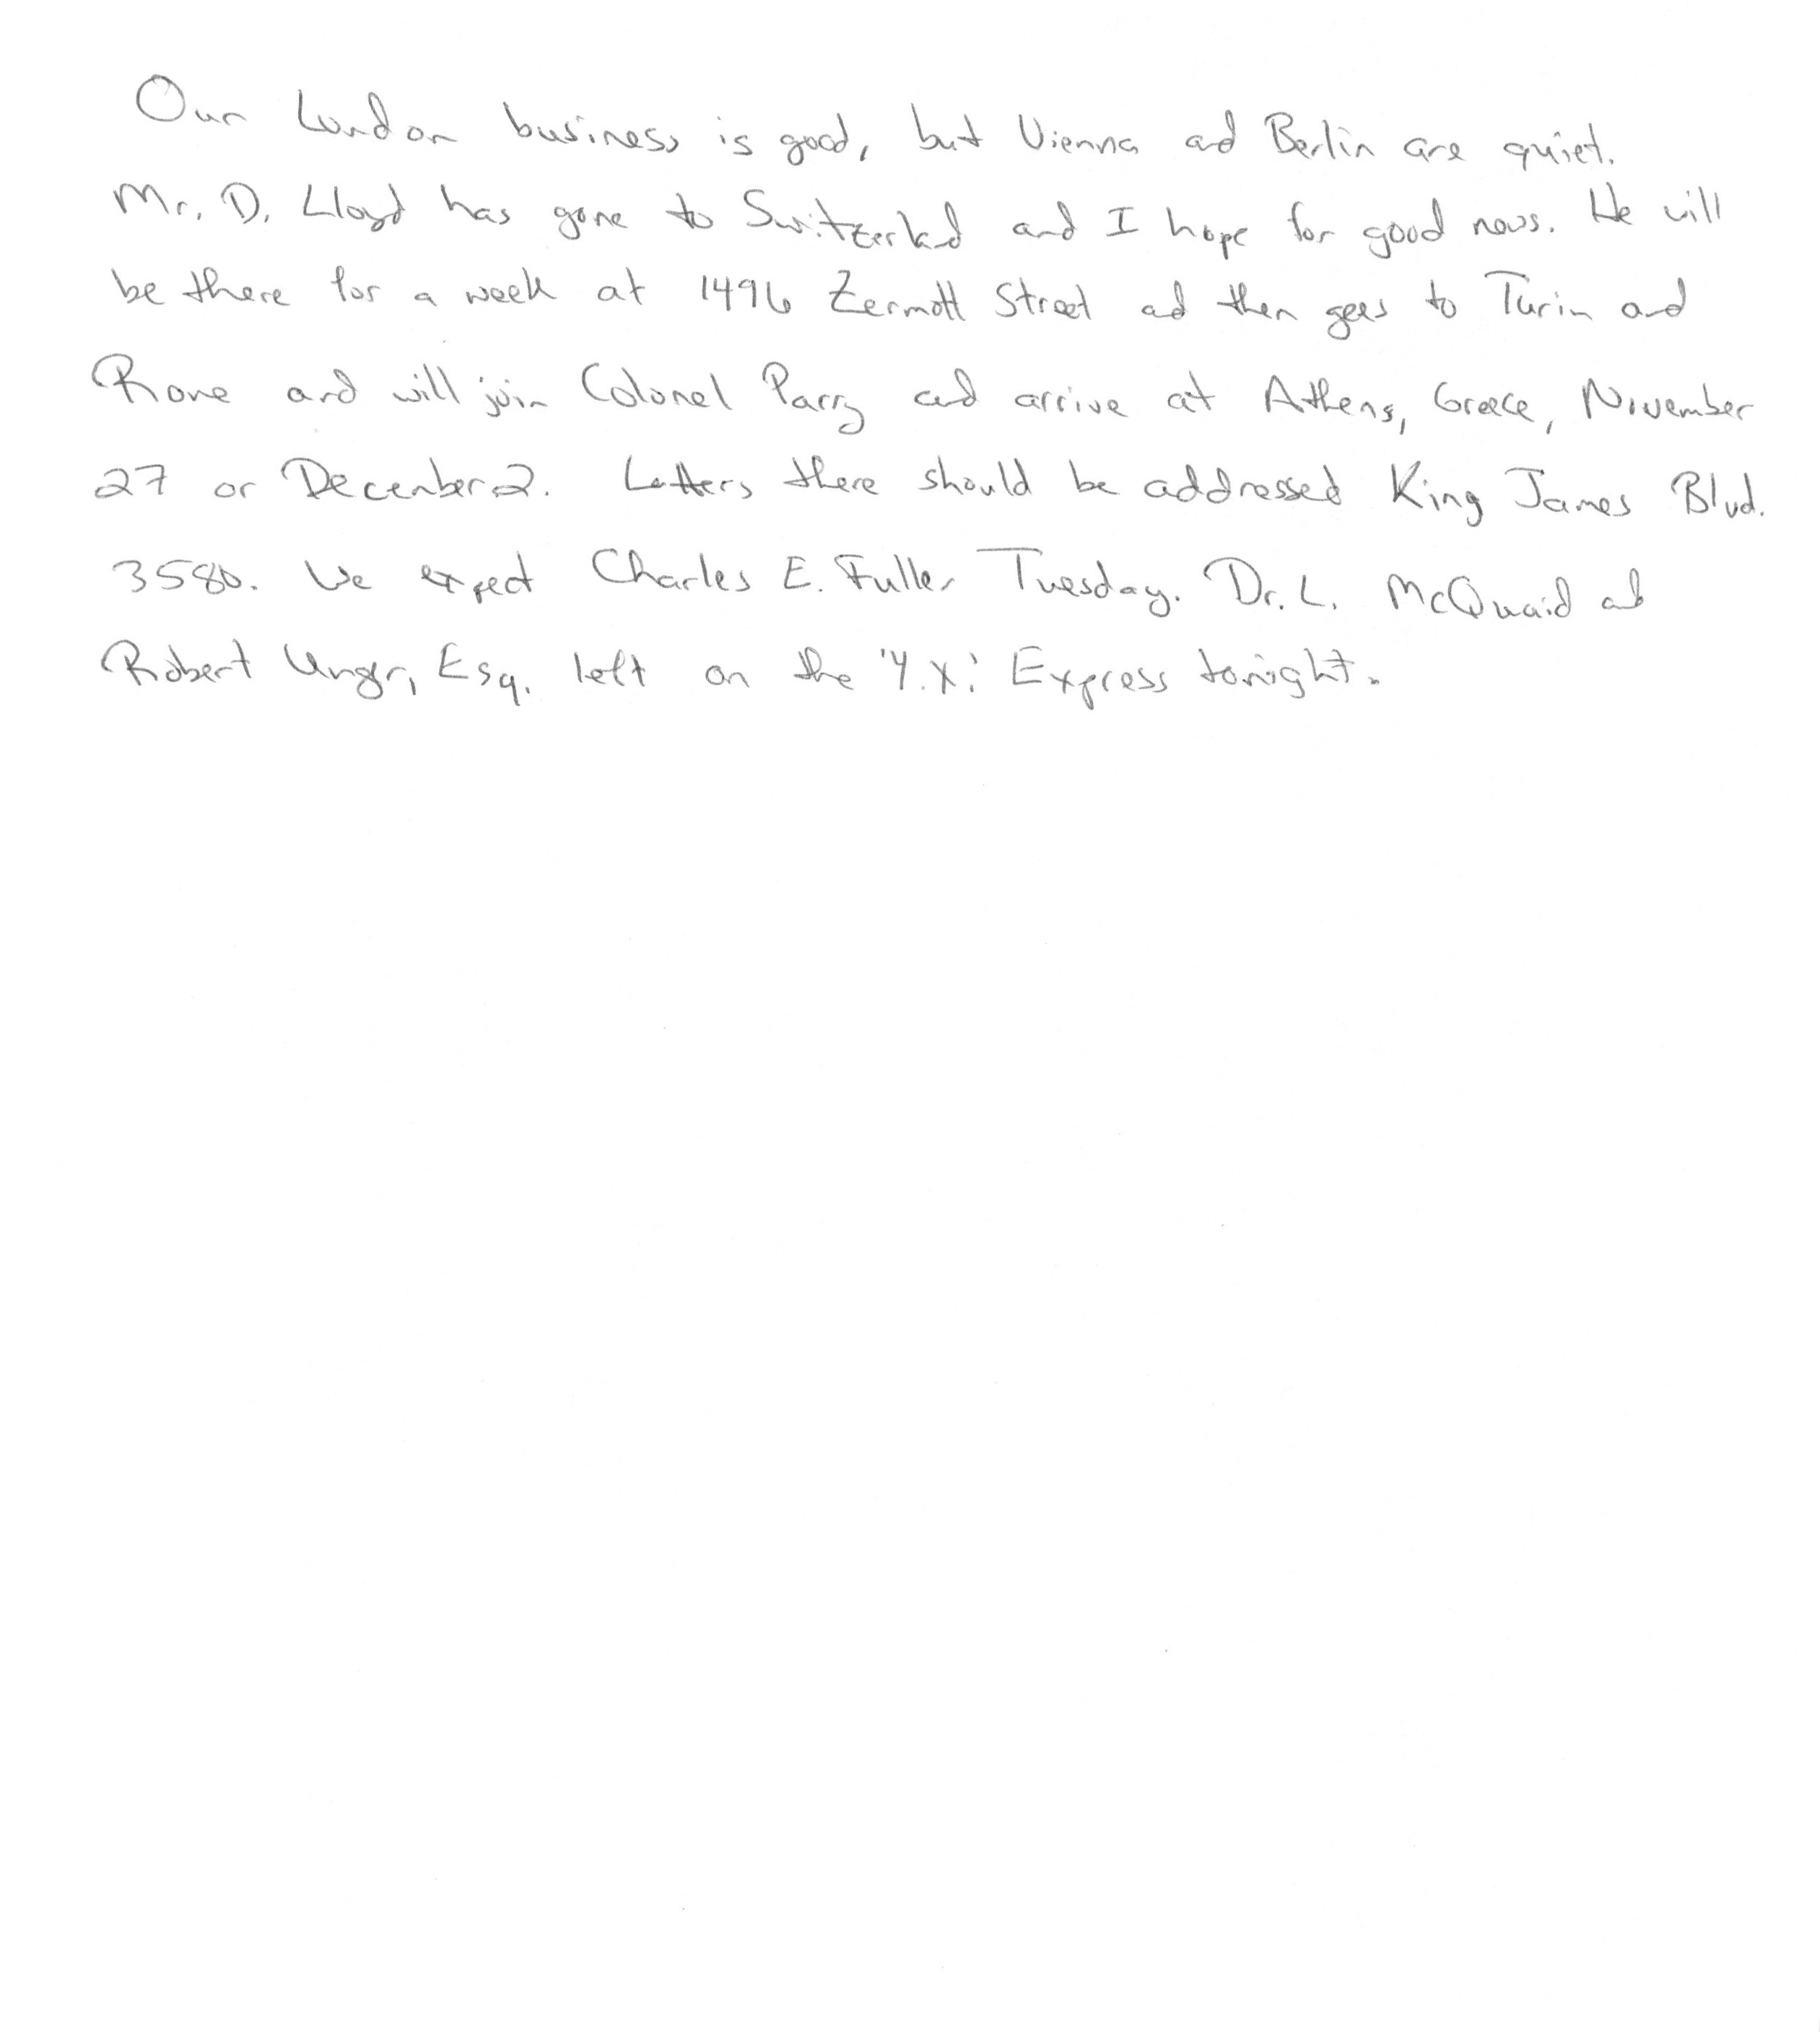 Our London business is good, but Vienna and Berlin are quiet.
Mr. D. Lloyd has gone to Switzerland and I hope for good news. He will
be there for a week at 1496 Zermott Street and then goes to Turin and
Rome and will join Colonel Parry and arrive at Athens, Greece, November
27 or December 2. Letters there should be addressed King James Blvd.
3580. We expect Charles E. Fuller Tuesday. Dr. L. McQuaid and
Robert Unger, Esq. left on the 'Y.X.' Express tonight.